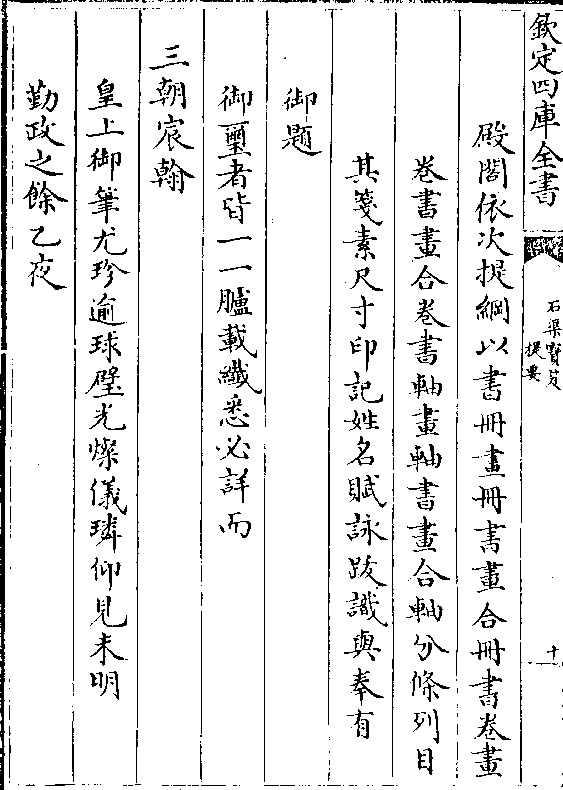 欽定四庫全書
石渠寶笈
提要
十
殿閣依次提綱以書冊畫冊書畫合冊書卷畫
卷書畫合卷書軸畫軸書畫合軸分條列目
其箋素尺寸印記姓名賦詠跋識與奉有
御題
御璽者皆一一臚載纖悉必詳而
三朝宸翰
皇上御筆尤珍逾球璧光燦儀璘仰見未明
勤政之餘乙夜